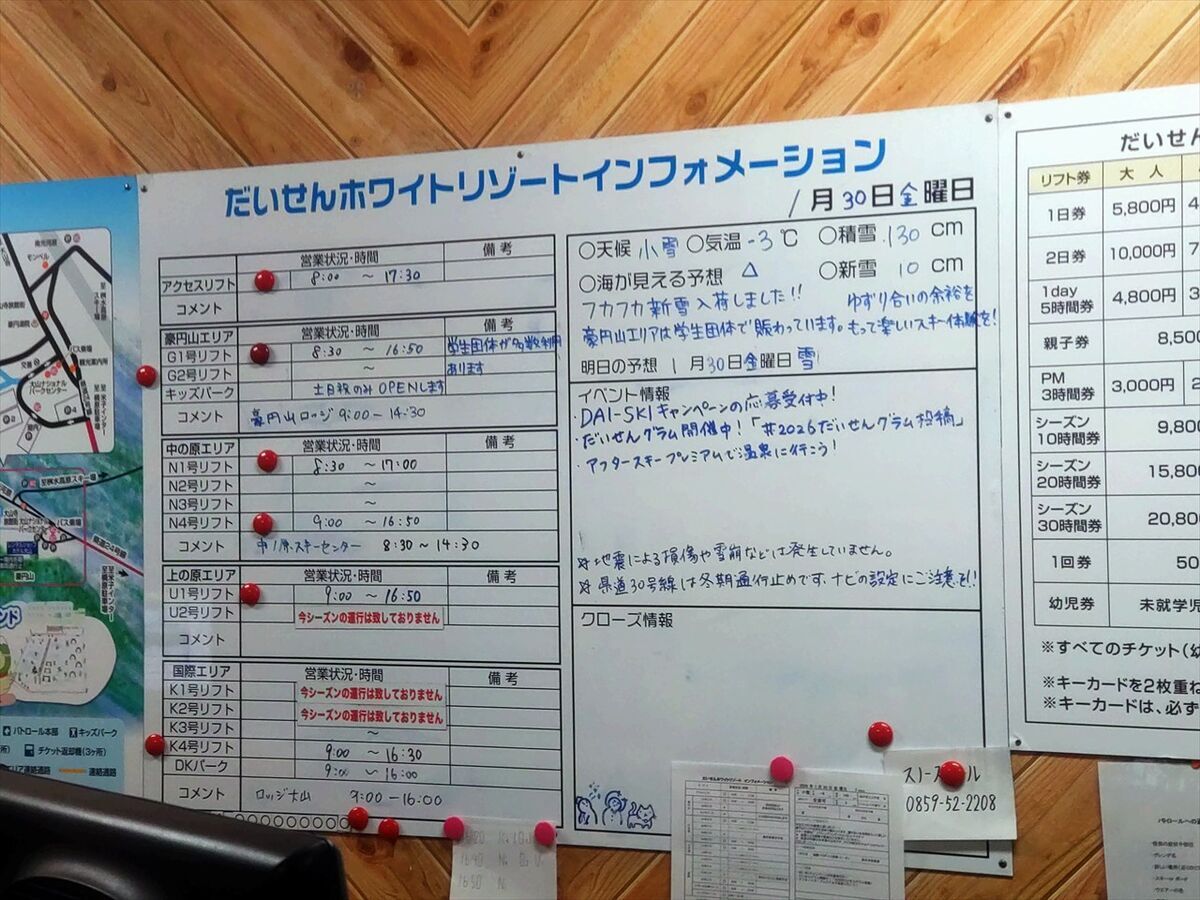 だいせんホワイトリゾートインフォメーション
1月30日金曜日
営業状況・時間 備考
アクセスリフト 8:00 ～ 17:30
コメント
豪円山エリア 営業状況・時間 備考
G1号リフト 8:30 ～ 16:50 学生団体が多数利用
G2号リフト ～ あります
キッズパーク 土日祝のみOPENします
コメント 豪円山ロッジ 9:00～14:30
中の原エリア 営業状況・時間 備考
N1号リフト 8:30 ～17:00
N2号リフト ～
N3号リフト ～
N4号リフト 9:00 ～16:50
コメント 中ノ原スキーセンター 8:30～14:30
上の原エリア 営業状況・時間 備考
U1号リフト 9:00 ～ 16:50
U2号リフト 今シーズンの運行は致しておりません
コメント
国際エリア 営業状況・時間 備考
K1号リフト 今シーズンの運行は致しておりません
K2号リフト 今シーズンの運行は致しておりません
K3号リフト ～
K4号リフト 9:00 ～ 16:30
DKパーク 9:00 ～ 16:00
コメント ロッジ大山 9:00－16:00
○天候 小雪 ○気温 -3℃ ○積雪 130 cm
○海が見える予想 △ ○新雪 10 cm
フカフカ新雪入荷しました!! ゆずり合いの余裕を
豪円山エリアは学生団体で賑わっています。もって楽しいスキー体験を!
明日の予想 1月30日金曜日 雪
イベント情報
・DAI-SKIキャンペーンの応募受付中!
・だいせんグラム開催中!「#2026だいせんグラム投稿」
・アフタースキープレミアムで温泉に行こう!
※地震による損傷や雪崩などは発生していません。
※県道30号線は冬期通行止めです。ナビの設定にご注意を!!
クローズ情報
だいせん
リフト券 大人
1日券 5,800円 4
2日券 10,000円 7
1day
5時間券 4,800円 3
親子券 8,500
PM
3時間券 3,000円 2
シーズン
10時間券 9,800
シーズン
20時間券 15,800
シーズン
30時間券 20,80
1回券 50
幼児券 未就学児
※すべてのチケット(幼
※キーカードを2枚重ね
※キーカードは、必ず
0859-52-2208
だいせんホワイトリゾート インフォメーション
モンベル
バス乗場
大山ナショナル
パークセンター
至桝水高原スキー場
県道24号線
豪円山
パトロール本部 キッズパーク
チケット返却機(3ヶ所)
連絡通路